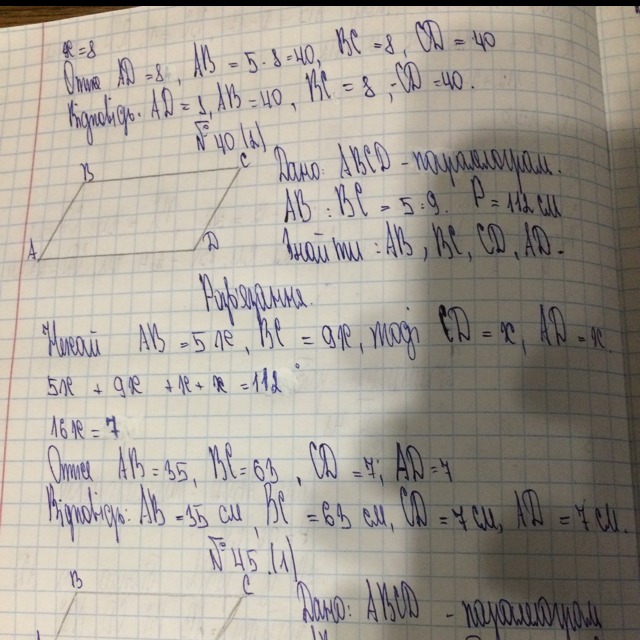 x=8
Отже AD = 8, AB = 5·8=40, BC = 8, CD = 40
Відповідь: AD = 8, AB = 40, BC = 8, CD = 40.
№ 40 (2)
B C
A D
Дано: ABCD - паралелограм.
AB : BC = 5:9. P = 112 см
Знайти: AB, BC, CD, AD.
Розв'язання.
Нехай AB = 5x, BC = 9x, тоді CD = x, AD = x.
5x + 9x + x + x = 112
16x = 7
Отже AB = 35, BC = 63, CD = 7, AD = 7
Відповідь: AB = 35 см, BC = 63 см, CD = 7 см, AD = 7 см.
№ 45 (1)
B C
Дано: ABCD - паралелограм